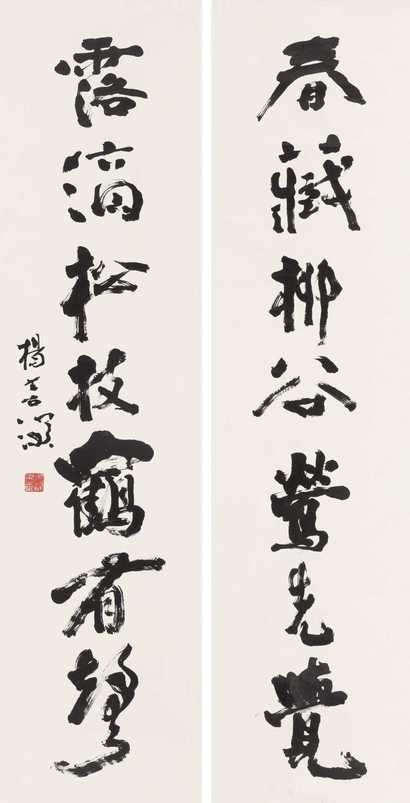 春藏柳谷鶯先覺
露滴松枝鶴有聲
楊善深